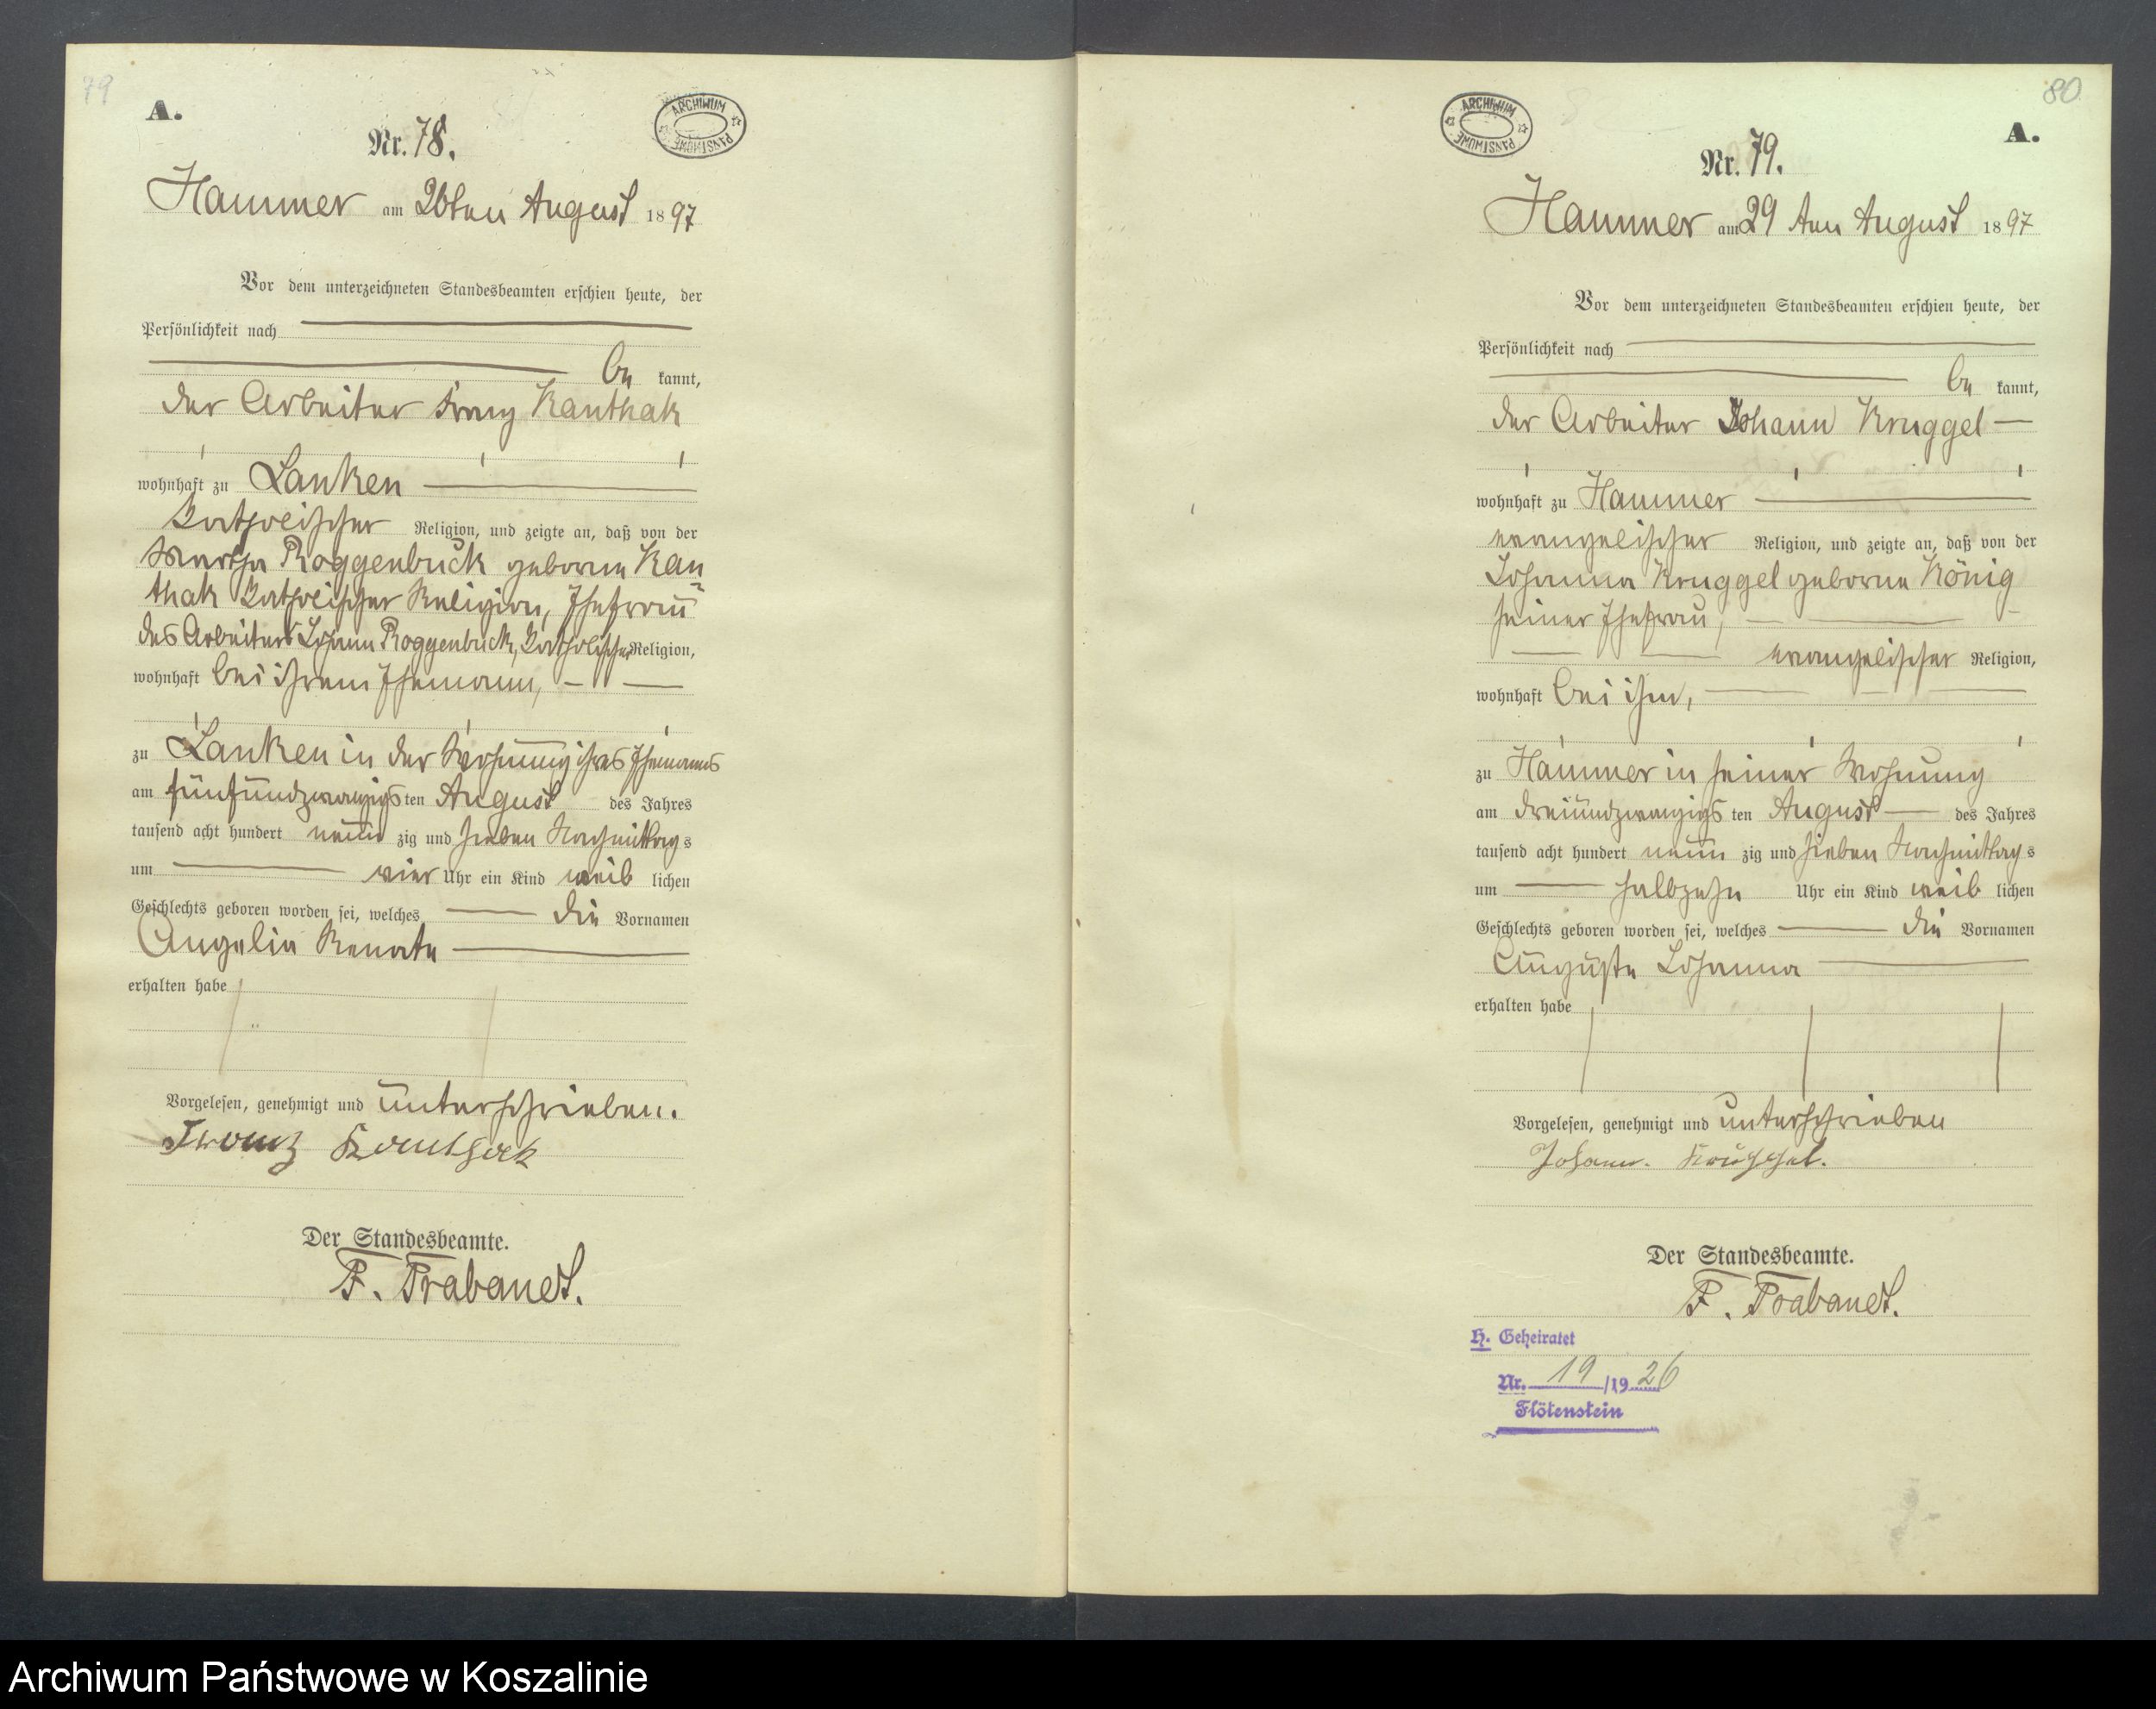 79
A.
ARCHIWUM PAŃSTWOWE
Nr. 78.
Hammer am 26ten August 1897
Vor dem unterzeichneten Standesbeamten erschien heute, der
Persönlichkeit nach
be kannt,
der Arbeiter Franz Kanthak
wohnhaft zu Lanken
katholischer Religion, und zeigte an, daß von der
Martha Roggenbuck geborne Kan
thak katholischer Religion, Ehefrau
des Arbeiters Johann Roggenbuck, katholischer Religion,
wohnhaft bei ihrem Ehemann,
zu Lanken in der Wohnung ihres Ehemanns
am fünfundzwanzigs ten August des Jahres
tausend acht hundert neun zig und sieben Nachmittag s
um vier Uhr ein Kind weib lichen
Geschlechts geboren worden sei, welches die Vornamen
Angelia Renate
erhalten habe
Vorgelesen, genehmigt und unterschrieben.
Franz Kanthak
Der Standesbeamte.
F. Trabandt.
80
A.
ARCHIWUM PAŃSTWOWE
Nr. 79.
Hammer am 29 ten August 1897
Vor dem unterzeichneten Standesbeamten erschien heute, der
Persönlichkeit nach
be kannt,
der Arbeiter Johann Kruggel
wohnhaft zu Hammer
evangelischer Religion, und zeigte an, daß von der
Johanna Kruggel geborne König
seiner Ehefrau,
evangelischer Religion,
wohnhaft bei ihm,
zu Hammer in seiner Wohnung
am dreiundzwanzigs ten August des Jahres
tausend acht hundert neun zig und sieben Nachmittag s
um halbzehn Uhr ein Kind weib lichen
Geschlechts geboren worden sei, welches die Vornamen
Auguste Johanna
erhalten habe
Vorgelesen, genehmigt und unterschrieben
Johann. Krüggel.
Der Standesbeamte.
F. Trabandt.
H. Geheiratet
Nr. 19 /1926
Flötenstein
Archiwum Państwowe w Koszalinie